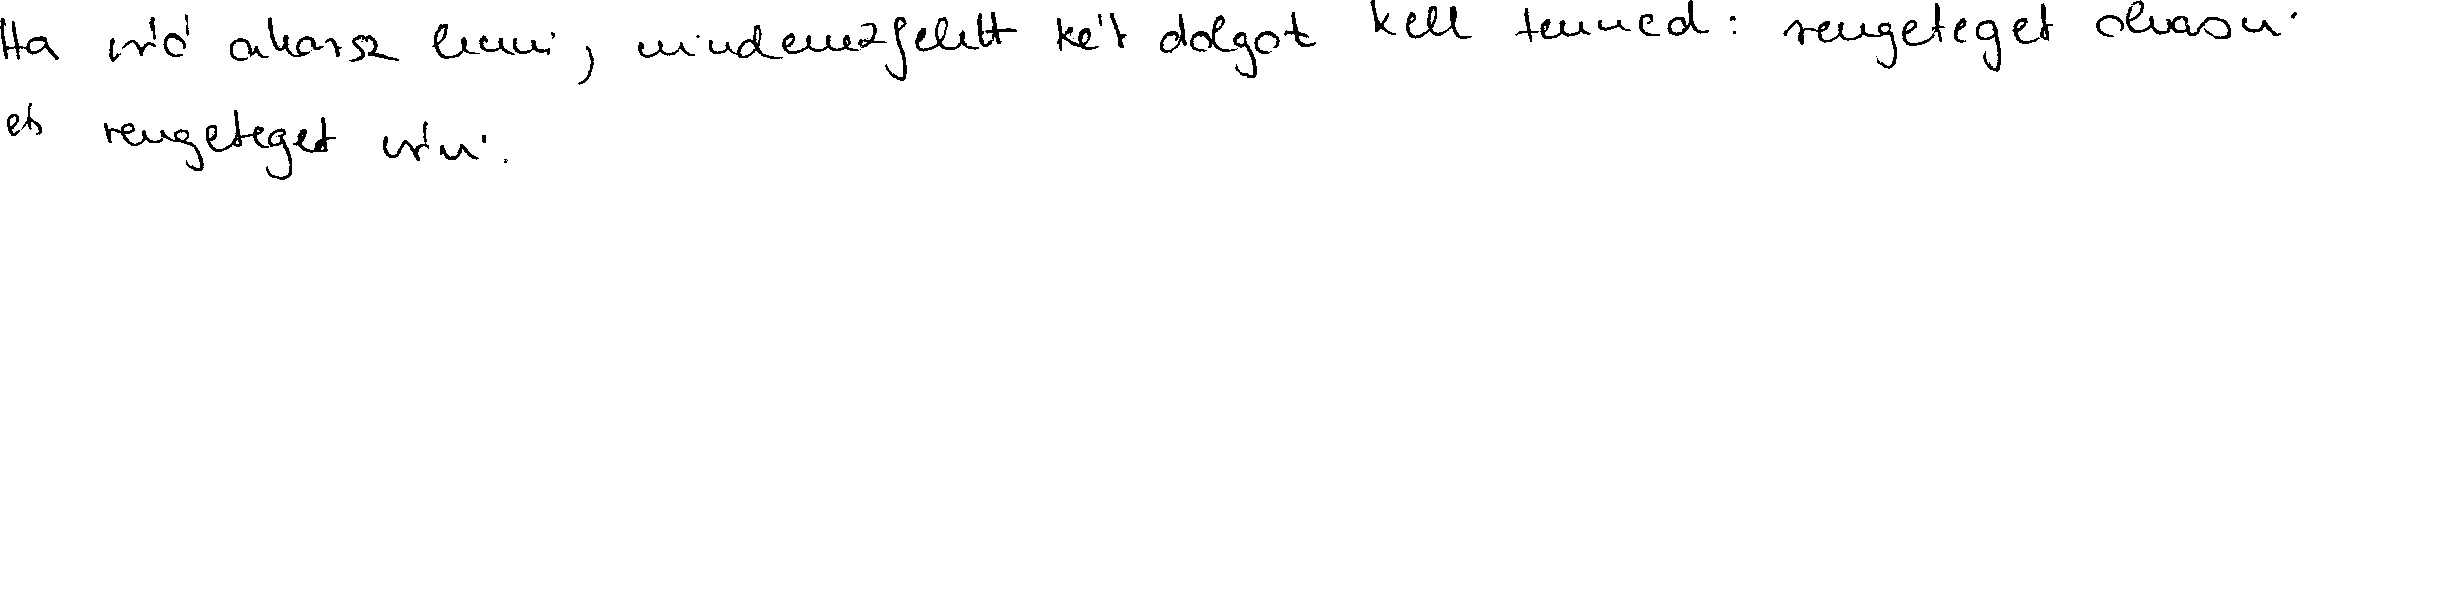 Ha író akarsz lenni, mindenezfelett két dolgot kell tenned: rengeteget olvasni
és rengeteget írni.